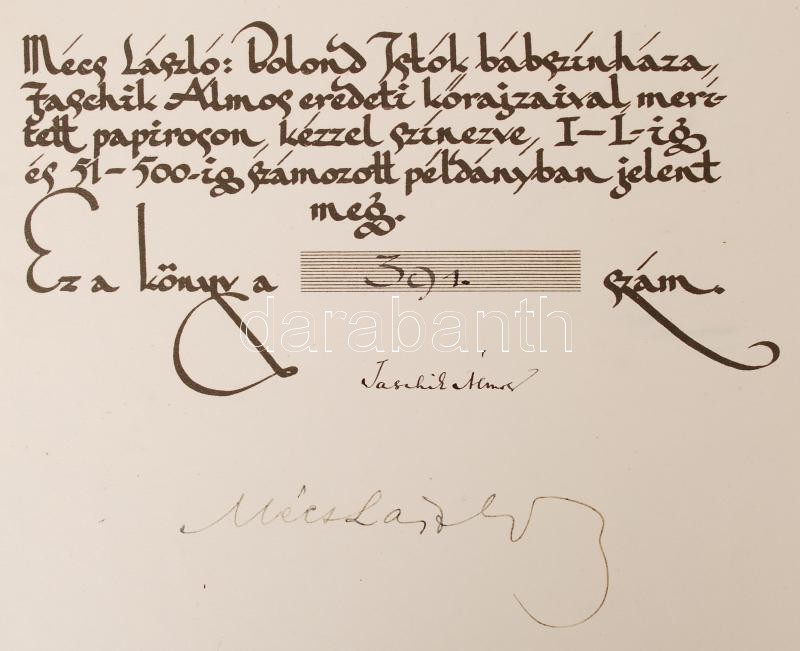 Mécs László: Bolond Istók bábszínháza,
Jaschik Álmos eredeti kőrajzaival, merí-
tett papiroson, kézzel színezve, I-L-ig
és 51-500-ig számozott példányban jelent
meg.
Ez a könyv a 391. szám.
darabanth
Jaschik Álmos
Mécs László